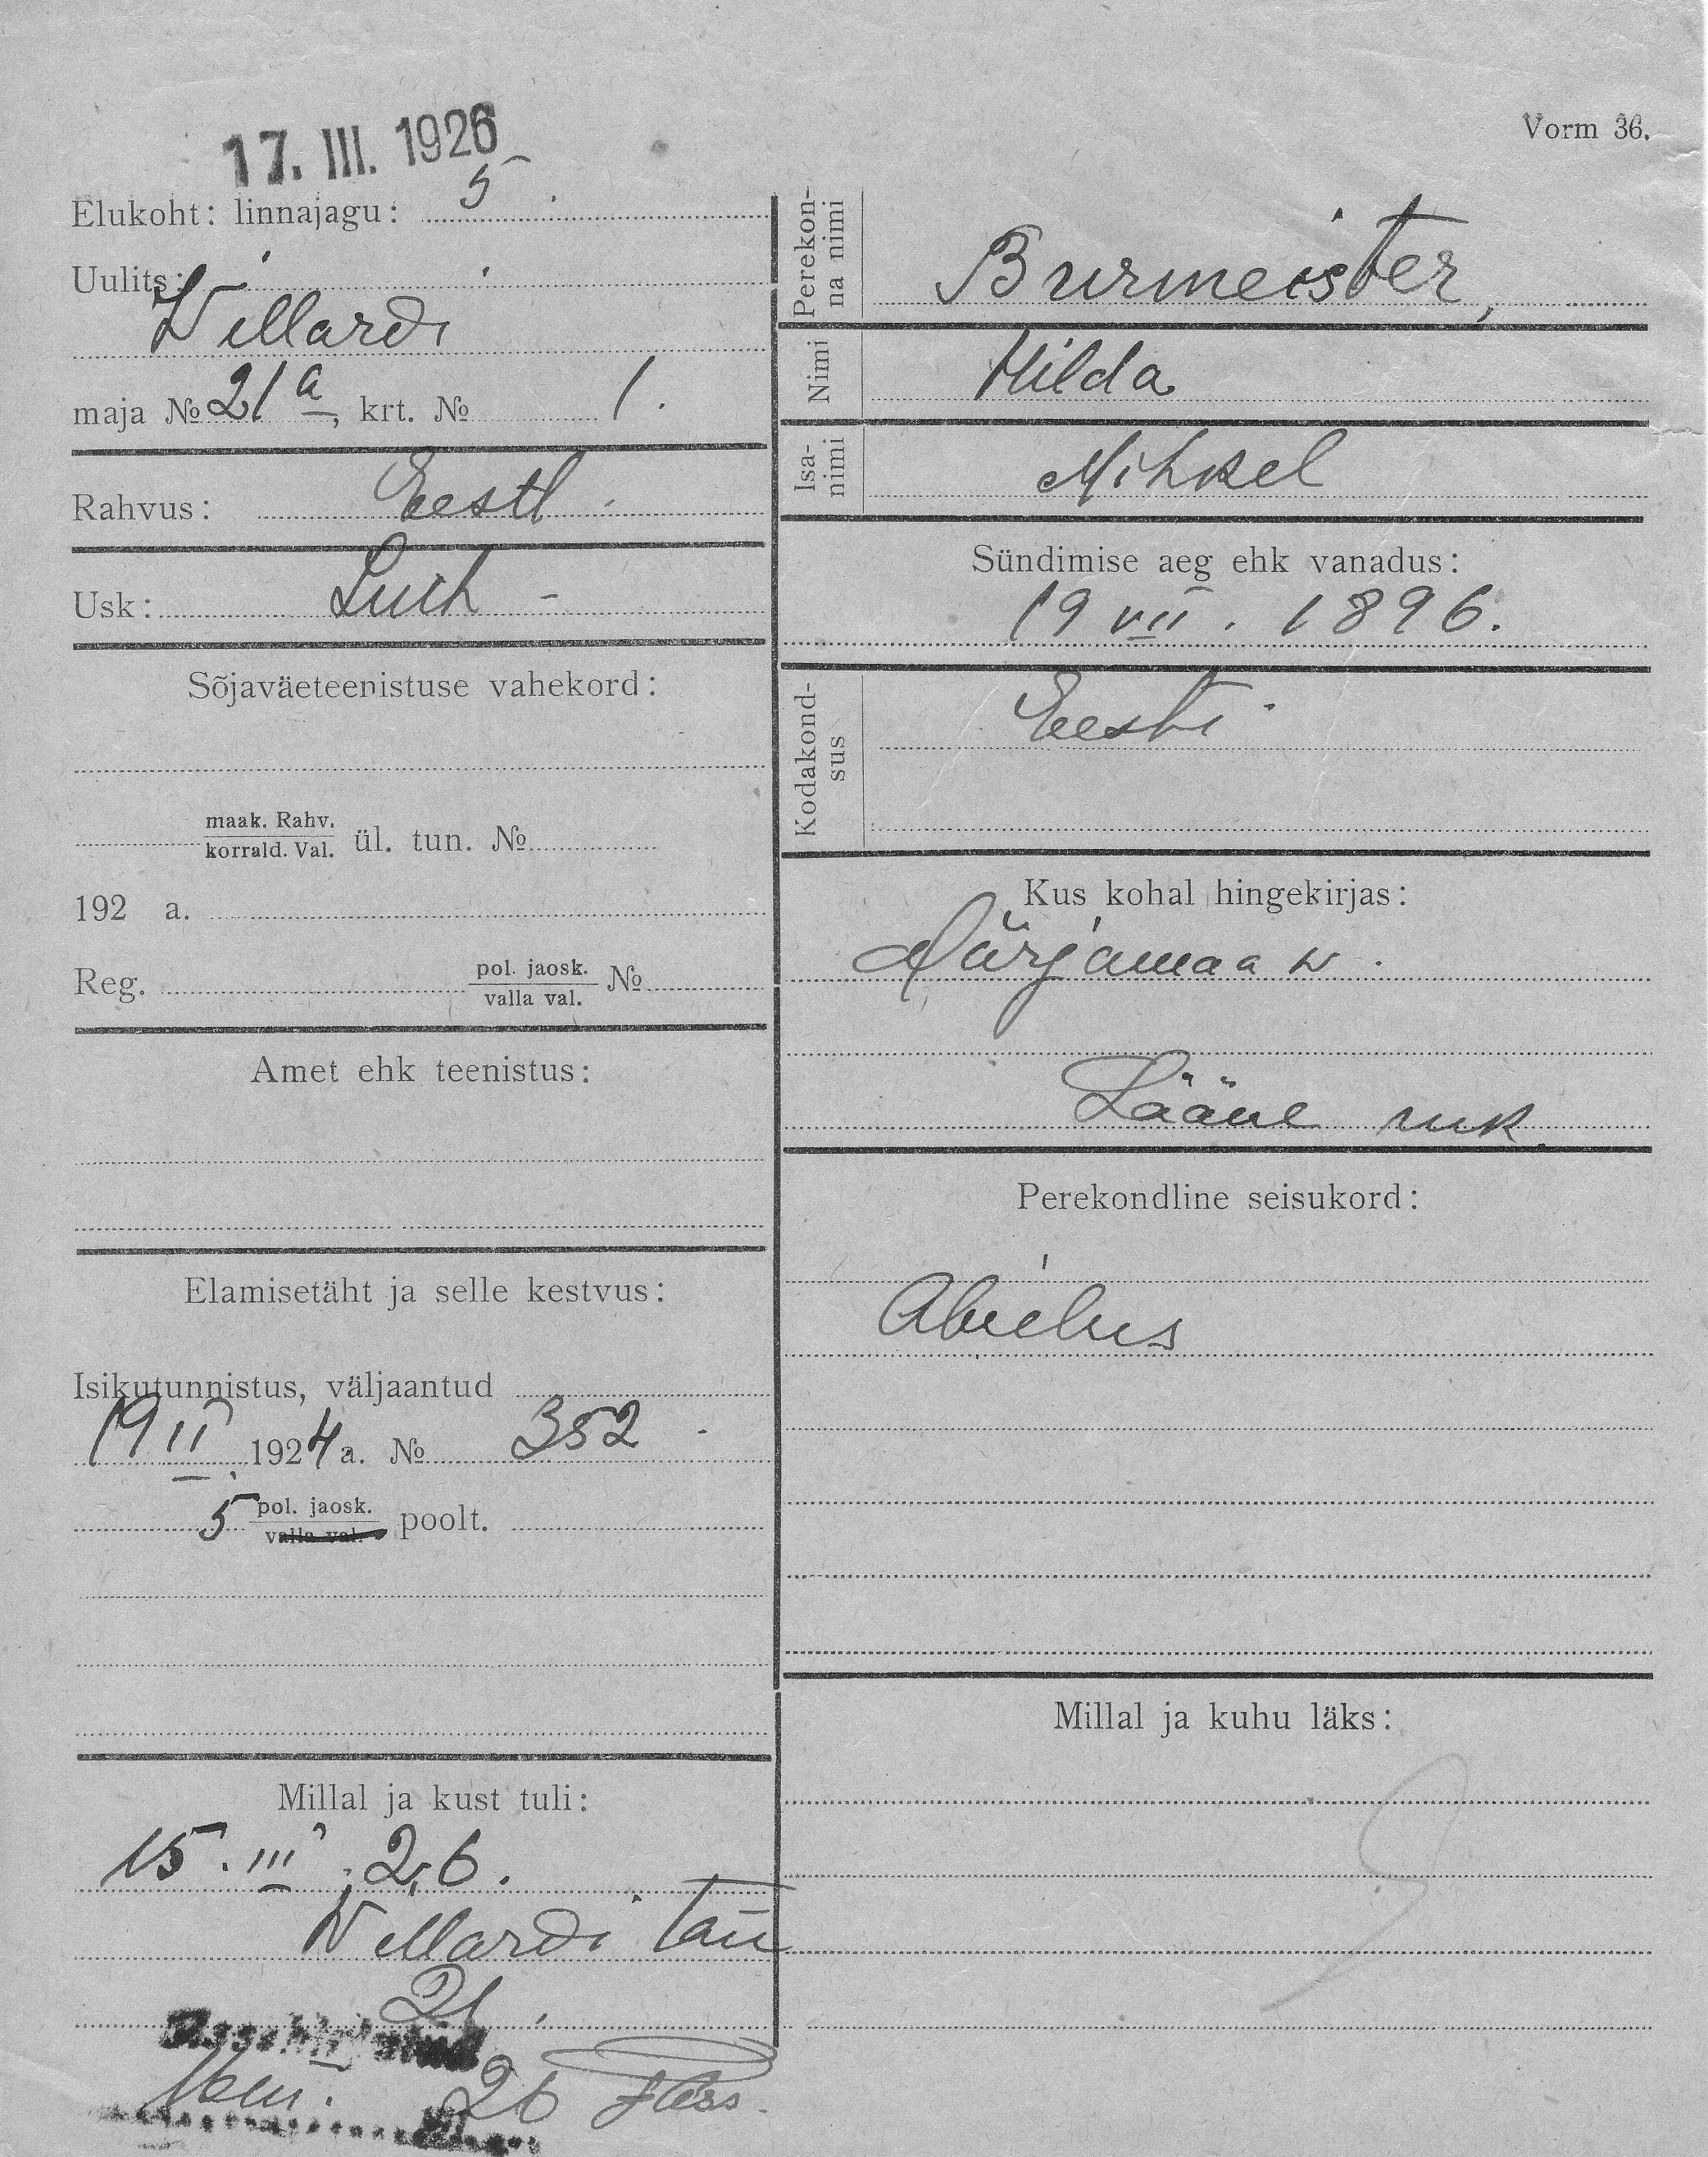 Vorm 36.
17. III. 1926
Elukoht: linnajagu: 5
Uulits:
Willardi
maja № 21 a, krt. № 1.
Rahvus: Eestl
Usk: Luth
Sõjaväeteenistuse vahekord:
maak. Rahv.
korrald. Val. ül. tun. №
192 a.
Reg. pol. jaosk.
valla val. №
Amet ehk teenistus:
Elamisetäht ja selle kestvus:
Isikutunnistus, väljaantud
19 II 1924 a. № 352
5 pol. jaosk.
valla val. poolt.
Millal ja kust tuli:
15. III. 26.
Willardi tän
21.
Sissekirjutud
26
Perekon-
na nimi Burmeister,
Nimi Hilda
Isa-
nimi Mihkel
Sündimise aeg ehk vanadus:
19 VII. 1896.
Kodakond-
sus Eesti
Kus kohal hingekirjas:
Märjamaa w.
Lääne mk.
Perekondline seisukord:
Abielus
Millal ja kuhu läks: